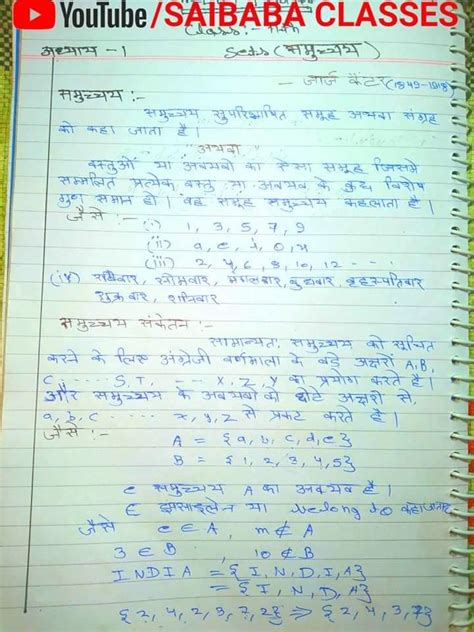 YouTube/SAIBABA CLASSES
Class :- 11th
अध्याय -1 Sets (समुच्चय)
- जार्ज कैंटर (1845-1918)
समुच्चय :-
समुच्चय सुपरिभाषित समूह अथवा संग्रह
को कहा जाता है।
अथवा
वस्तुओं या अवयवों का ऐसा समूह जिसमें
सम्मलित प्रत्येक वस्तु या अवयव के कुछ विशेष
गुण समान हो। वह समूह समुच्चय कहलाता है।
जैसे :- (i) 1, 3, 5, 7, 9
(ii) a, e, i, o, u
(iii) 2, 4, 6, 8, 10, 12 - - -
(iv) रविवार, सोमवार, मंगलवार, बुधवार, बृहस्पतिवार
शुक्रवार, शनिवार
समुच्चय संकेतन :-
सामान्यतः समुच्चय को सूचित
करने के लिए अंग्रेजी वर्णमाला के बड़े अक्षरों A, B,
C ...... S, T, - - X, Z, Y का प्रयोग करते है।
और समुच्चय के अवयवों को छोटे अक्षरों से
a, b, c ...... x, y, z से प्रकट करते है।
जैसे :-
A = {a, b, c, d, e}
B = {1, 2, 3, 4, 5}
e समुच्चय A का अवयव है।
∈ इपसाइलेन या belong to कहा जाता
जैसे e ∈ A, m ∉ A
3 ∈ B, 10 ∉ B
INDIA = {I, N, D, I, A}
= {I, N, D, A}
{2, 4, 2, 3, 7, 2} ⇒ {2, 4, 3, 7}